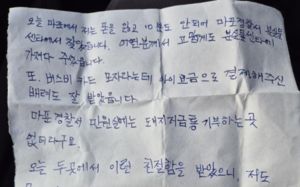 오늘 마포에서 저는 폰을 잃고 10분도 안되어 마포경찰서 분실물
센타에서 찾았습니다. 어떤분께서 고맙게도 분실물센타에
가져다 주었습니다.
또. 버스비 카드 모자라는데 아이요금으로 결제해주신
배려도 잘 받았습니다.
마포 경찰서 민원실에는 돼지저금통 기부하는 곳
없더라구요.
오늘 두곳에서 이런 친절함을 받았으니, 저도